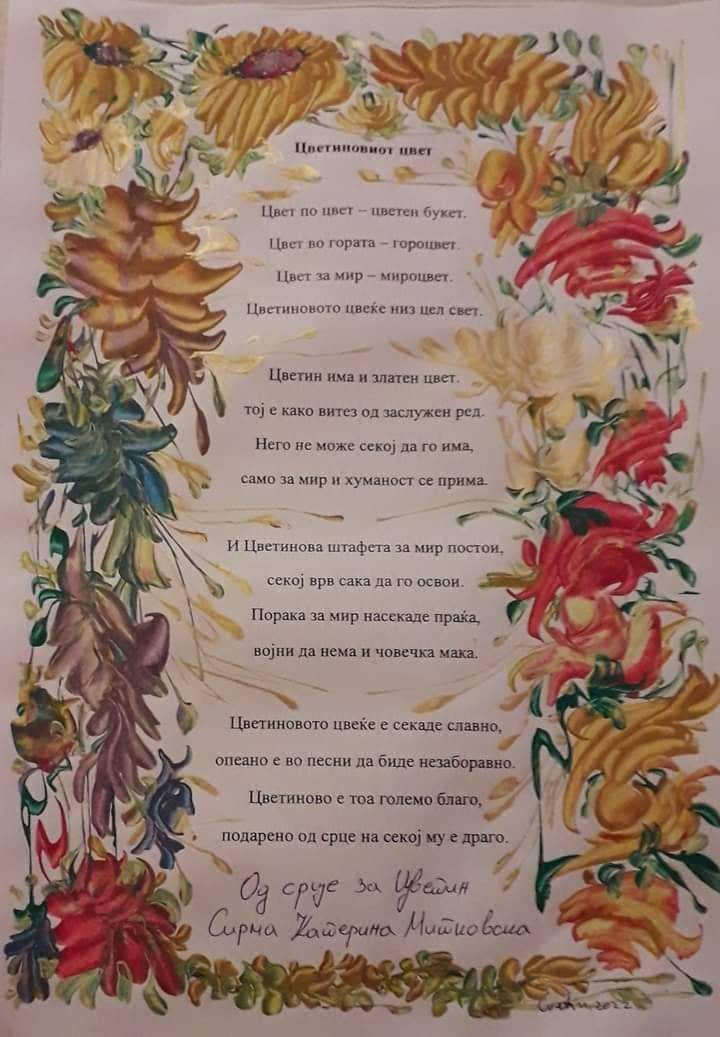 Цветиновиот цвет
Цвет по цвет – цветен букет.
Цвет во гората – гороцвет.
Цвет за мир – мироцвет.
Цветиновото цвеќе низ цел свет.
Цветин има и златен цвет.
тој е како витез од заслужен ред.
Него не може секој да го има,
само за мир и хуманост се прима.
И Цветинова штафета за мир постои,
секој врв сака да го освои.
Порака за мир насекаде праќа,
војни да нема и човечка мака.
Цветиновото цвеќе е секаде славно,
опеано е во песни да биде незаборавно.
Цветиново е тоа големо благо,
подарено од срце на секој му е драго.
Од срце за Цветин
Сирма Катерина Митковска
2022